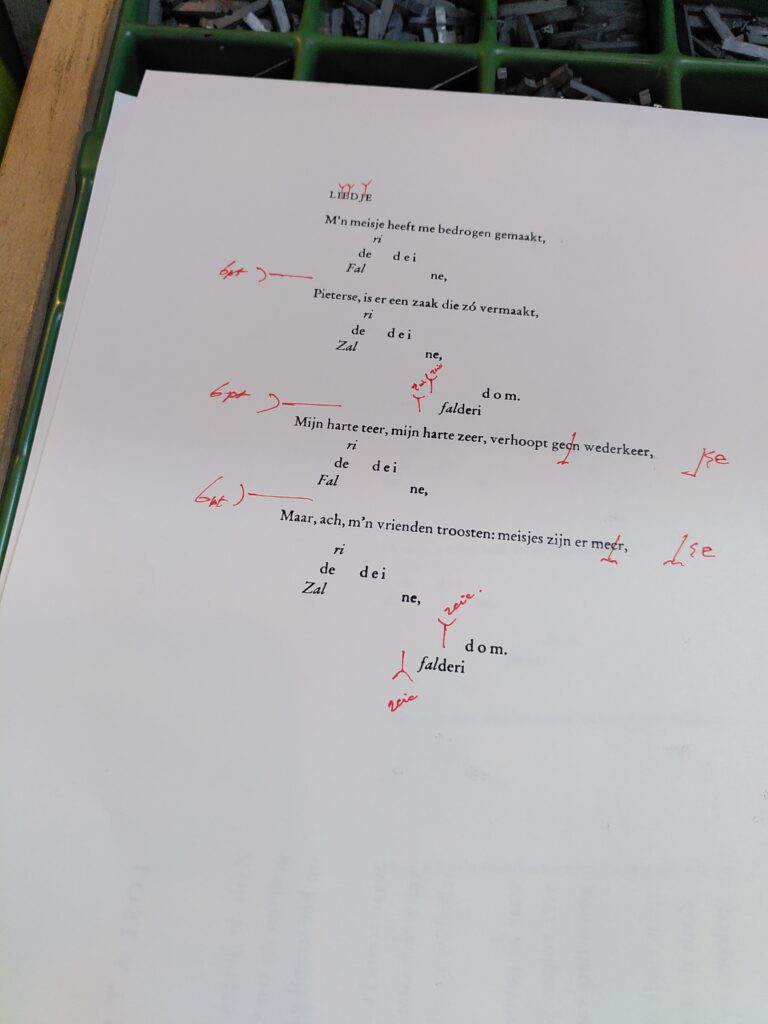 LIEDJE
M'n meisje heeft me bedrogen gemaakt,
ri
de dei
Fal ne,
6pt
Pieterse, is er een zaak die zó vermaakt,
ri
de dei
Zal ne,
dom.
falderi
6pt
Mijn harte teer, mijn harte zeer, verhoopt gecn wederkeer,
e
ri
de dei
Fal ne,
6pt
Maar, ach, m'n vrienden troosten: meisjes zijn er mecr,
e
ri
de dei
Zal ne,
dom.
falderi